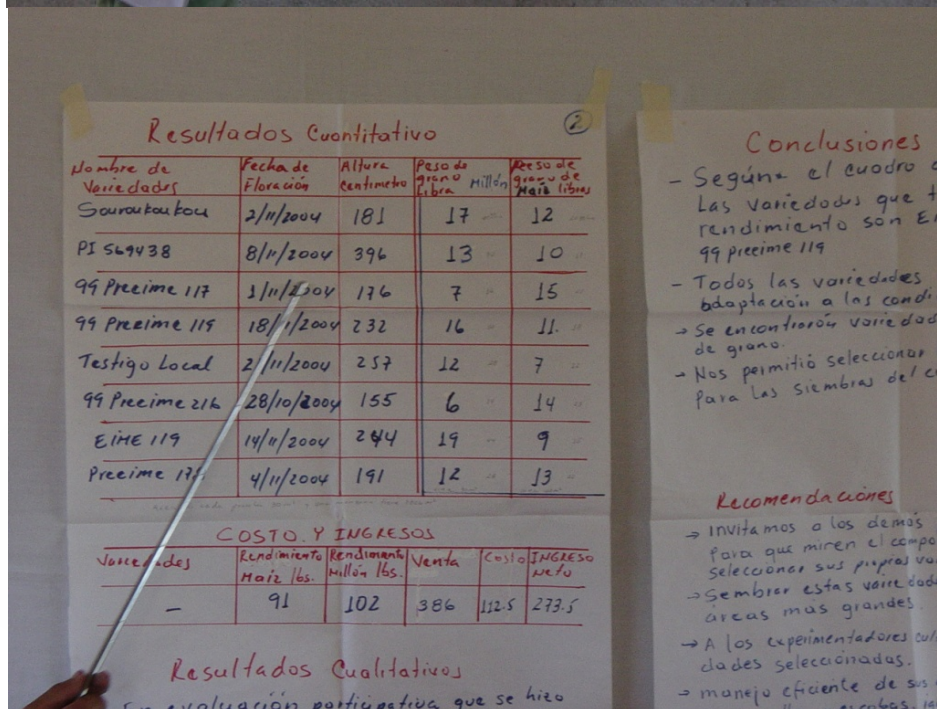 Resultados Cuantitativo
2
Nombre de Variedades Fecha de Floración Altura Centimetro Peso de grano Libra Millón Peeso de grano de Maiz libras
Souroukoukou 2/11/2004 181 17 12
PI 569438 8/11/2004 396 13 10
99 Precime 117 1/11/2004 176 7 15
99 Precime 119 18/11/2004 232 16 11.
Testigo Local 2/11/2004 257 12 7
99 Precime 216 28/10/2004 155 6 14
EIME 119 14/11/2004 244 19 9
Precime 4/11/2004 191 12 13
COSTO. Y INGRESOS
Rendimiento Maiz lbs. Rendimiento Millón lbs. Venta Costo INGRESO Neto
- 91 102 386 112.5 273.5
Resultados Cualitativos
evaluación participativa que se hizo
Conclusiones
- Según el cuadro
Las variedades que
rendimiento son
99 precime 119
- Todos las variedades
adaptación a las
→ Se encontrarón
de grano.
- Nos permitió seleccionar
Para las siembras del
Recomendaciones
→ Invitamos a los demás
para que miren el
seleccionar sus propias
→ Sembrar estas
áreas más grandes.
→ A los experimentadores
dades seleccionadas.
→ manejo eficiente de sus